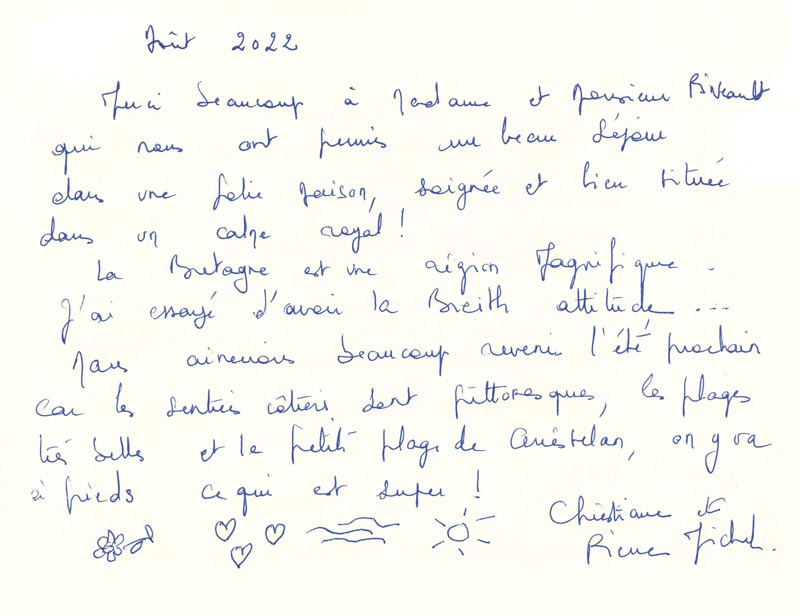 Août 2022
Merci beaucoup à Madame et Monsieur Riveault
qui nous ont permis un beau séjour
dans une jolie maison, soignée et bien située
dans un calme royal !
La Bretagne est une région Magnifique.
J'ai essayé d'avoir la Breith attitude ...
Nous aimerions beaucoup revenir l'été prochain
car les sentiers côtiers sont pittoresques, les plages
très belles et la petite plage de on y va
à pieds ce qui est super !
Christiane et
Pierre Michel.